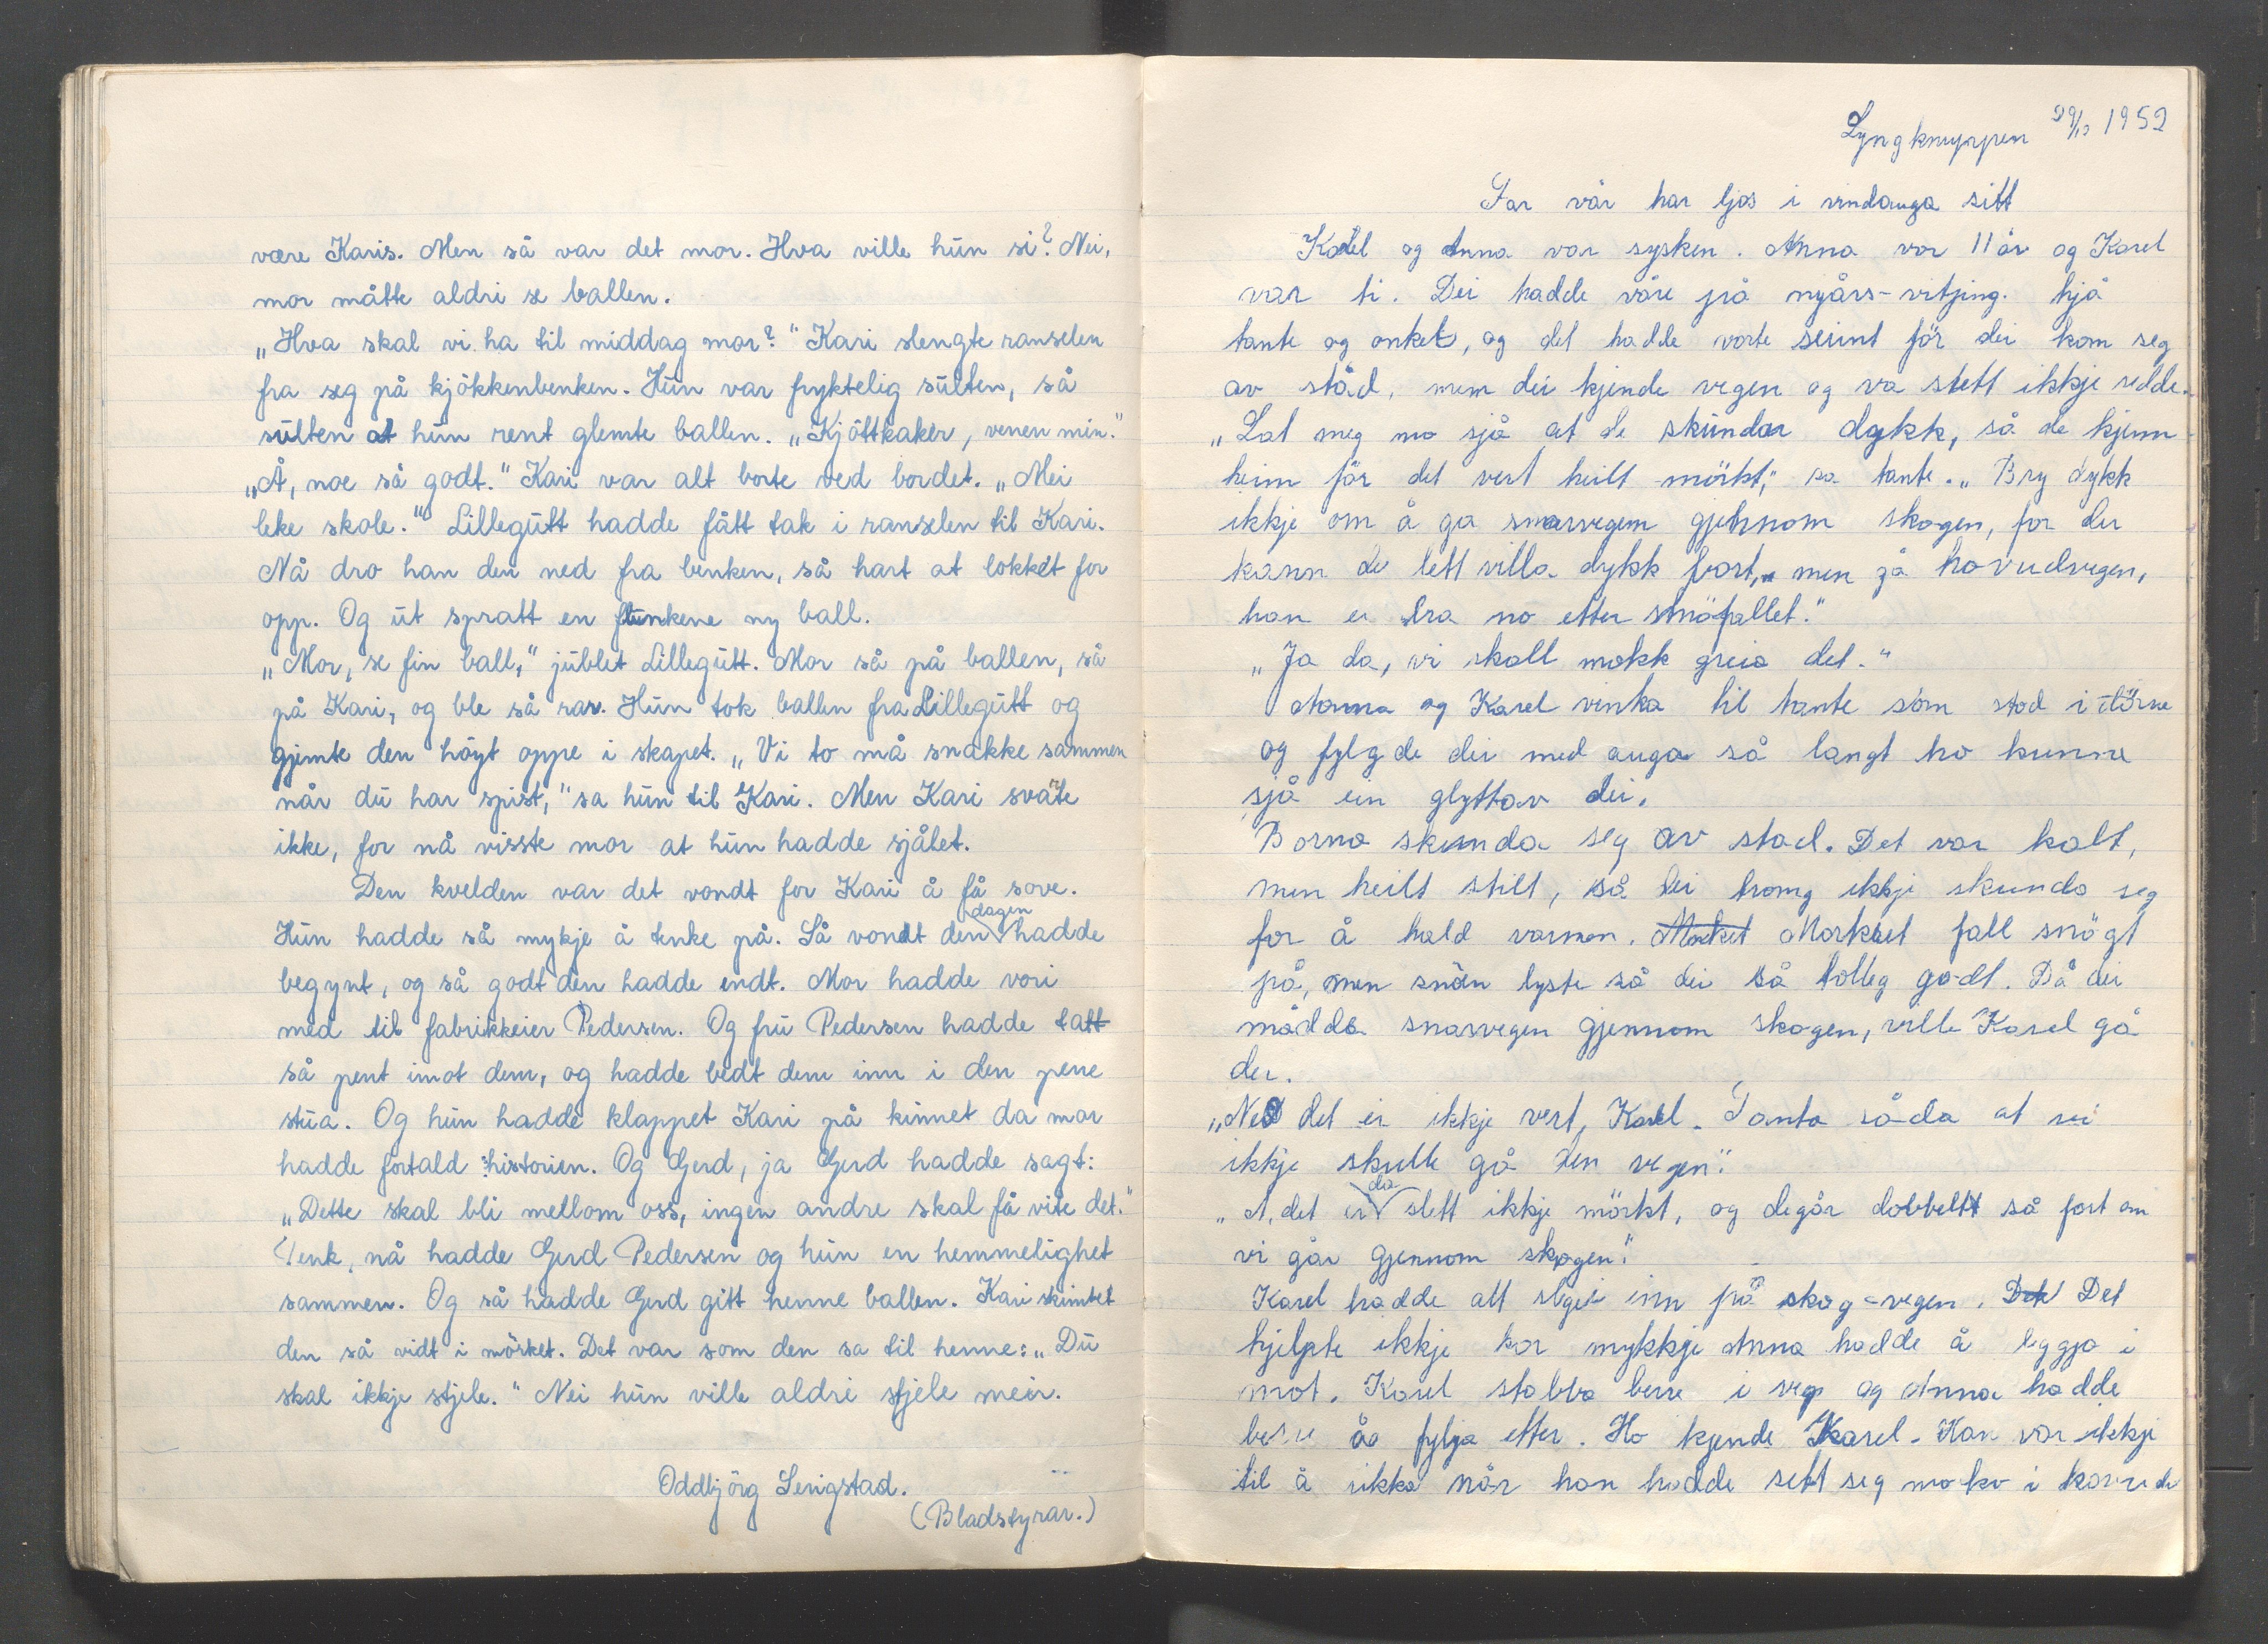 være Karis. Men så var det mor. Hva ville hun si? Nei,
mor måtte aldri se ballen.
„Hva skal vi ha til middag mor?" Kari slengte ranselen
fra seg på kjökkenbenken. Hun var fryktelig sulten, så
sulten at hun rent glemte ballen. „Kjöttkaker, venen min."
„Å, noe så godt." Kari var alt borte ved bordet. „Mei
leke skole." Lillegutt hadde fått tak i ranselen til Kari.
Nå dro han den ned fra benken, så hart at lokket for
opp. Og ut spratt en flunkene ny ball.
„Mor, se fin ball," jublet Lillegutt. Mor så på ballen, så
på Kari, og ble så rar. Hun tok ballen fra Lillegutt og
gjemte den höyt oppe i skapet. „Vi to må snakke sammen
når du har spist," sa hun til Kari. Men Kari svarte
ikke, for nå visste mor at hun hadde stjålet.
Den kvelden var det vondt for Kari å få sove.
Hun hadde så mykje å tenke på. Så vondt den dagen hadde
begynt, og så godt den hadde endt. Mor hadde vori
med til fabrikkeier Pedersen. Og fru Pedersen hadde tatt
så pent imot dem, og hadde bedt dem inn i den pene
stua. Og hun hadde klappet Kari på kinnet da mor
hadde fortald historien. Og Gerd, ja Gerd hadde sagt:
„Dette skal bli mellom oss, ingen andre skal få vite det."
Tenk, nå hadde Gerd Pedersen og hun en hemmelighet
sammen. Og så hadde Gerd gitt henne ballen. Kari skimtet
den så vidt i mörket. Det var som den sa til henne: „Du
skal ikkje stjele." Nei hun ville aldri stjele meir.
Oddbjörg Serigstad.
(Bladstyrar.)
Lyngknuppen 1952
Far vår har ljos i vindauga sitt
Karel og Anna var sysken. Anna var 11 år og Karel
var ti. Dei hadde våre på nyårs-vitjing hjå
tante og onkel, og det hadde vorte seint för dei kom seg
av stad, men dei kjende vegen og va slett ikkje redde.
„Lat meg no sjå at de skundar dykk, så de kjem
heim för det vert heilt mörkt," sa tante. „Bry dykk
ikkje om å ga snarvegen gjennom skogen, for der
kann de lett villa dykk bort, men gå hovudvegen,
han er bra no etter snöfallet."
„Ja da, vi skall nokk greia det."
Anna og Karel vinka til tante som stod i dörne
og fylgde dei med auga så langt ho kunne
sjå ein glytt av dei.
Borna skunda seg av stad. Det var kalt,
men heilt stilt, så dei trong ikkje skunda seg
for å hald varmen. Mörket Mørkret fall snögt
på, men snöen lyste så dei så tolleg godt. Då dei
nådde snarvegen gjennom skogen, ville Karel gå
der.
„Nei det er ikkje vert, Karel. Tanta sa da at vi
ikkje skulle gå den vegen".
„Å, det er da slett ikkje mörkt, og de går dobbelt så fort om
vi går gjennom skogen".
Karel hadde alt slege inn på skog-vegen. Det Det
hjelpte ikkje kor mykkje Anna hadde å leggja i
mot. Karel stabba berre i veg og Anna hadde
berre åo fylgja etter. Ho kjende Karel. Han var ikkje
til å rikka når han hadde sett seg noko i hovude